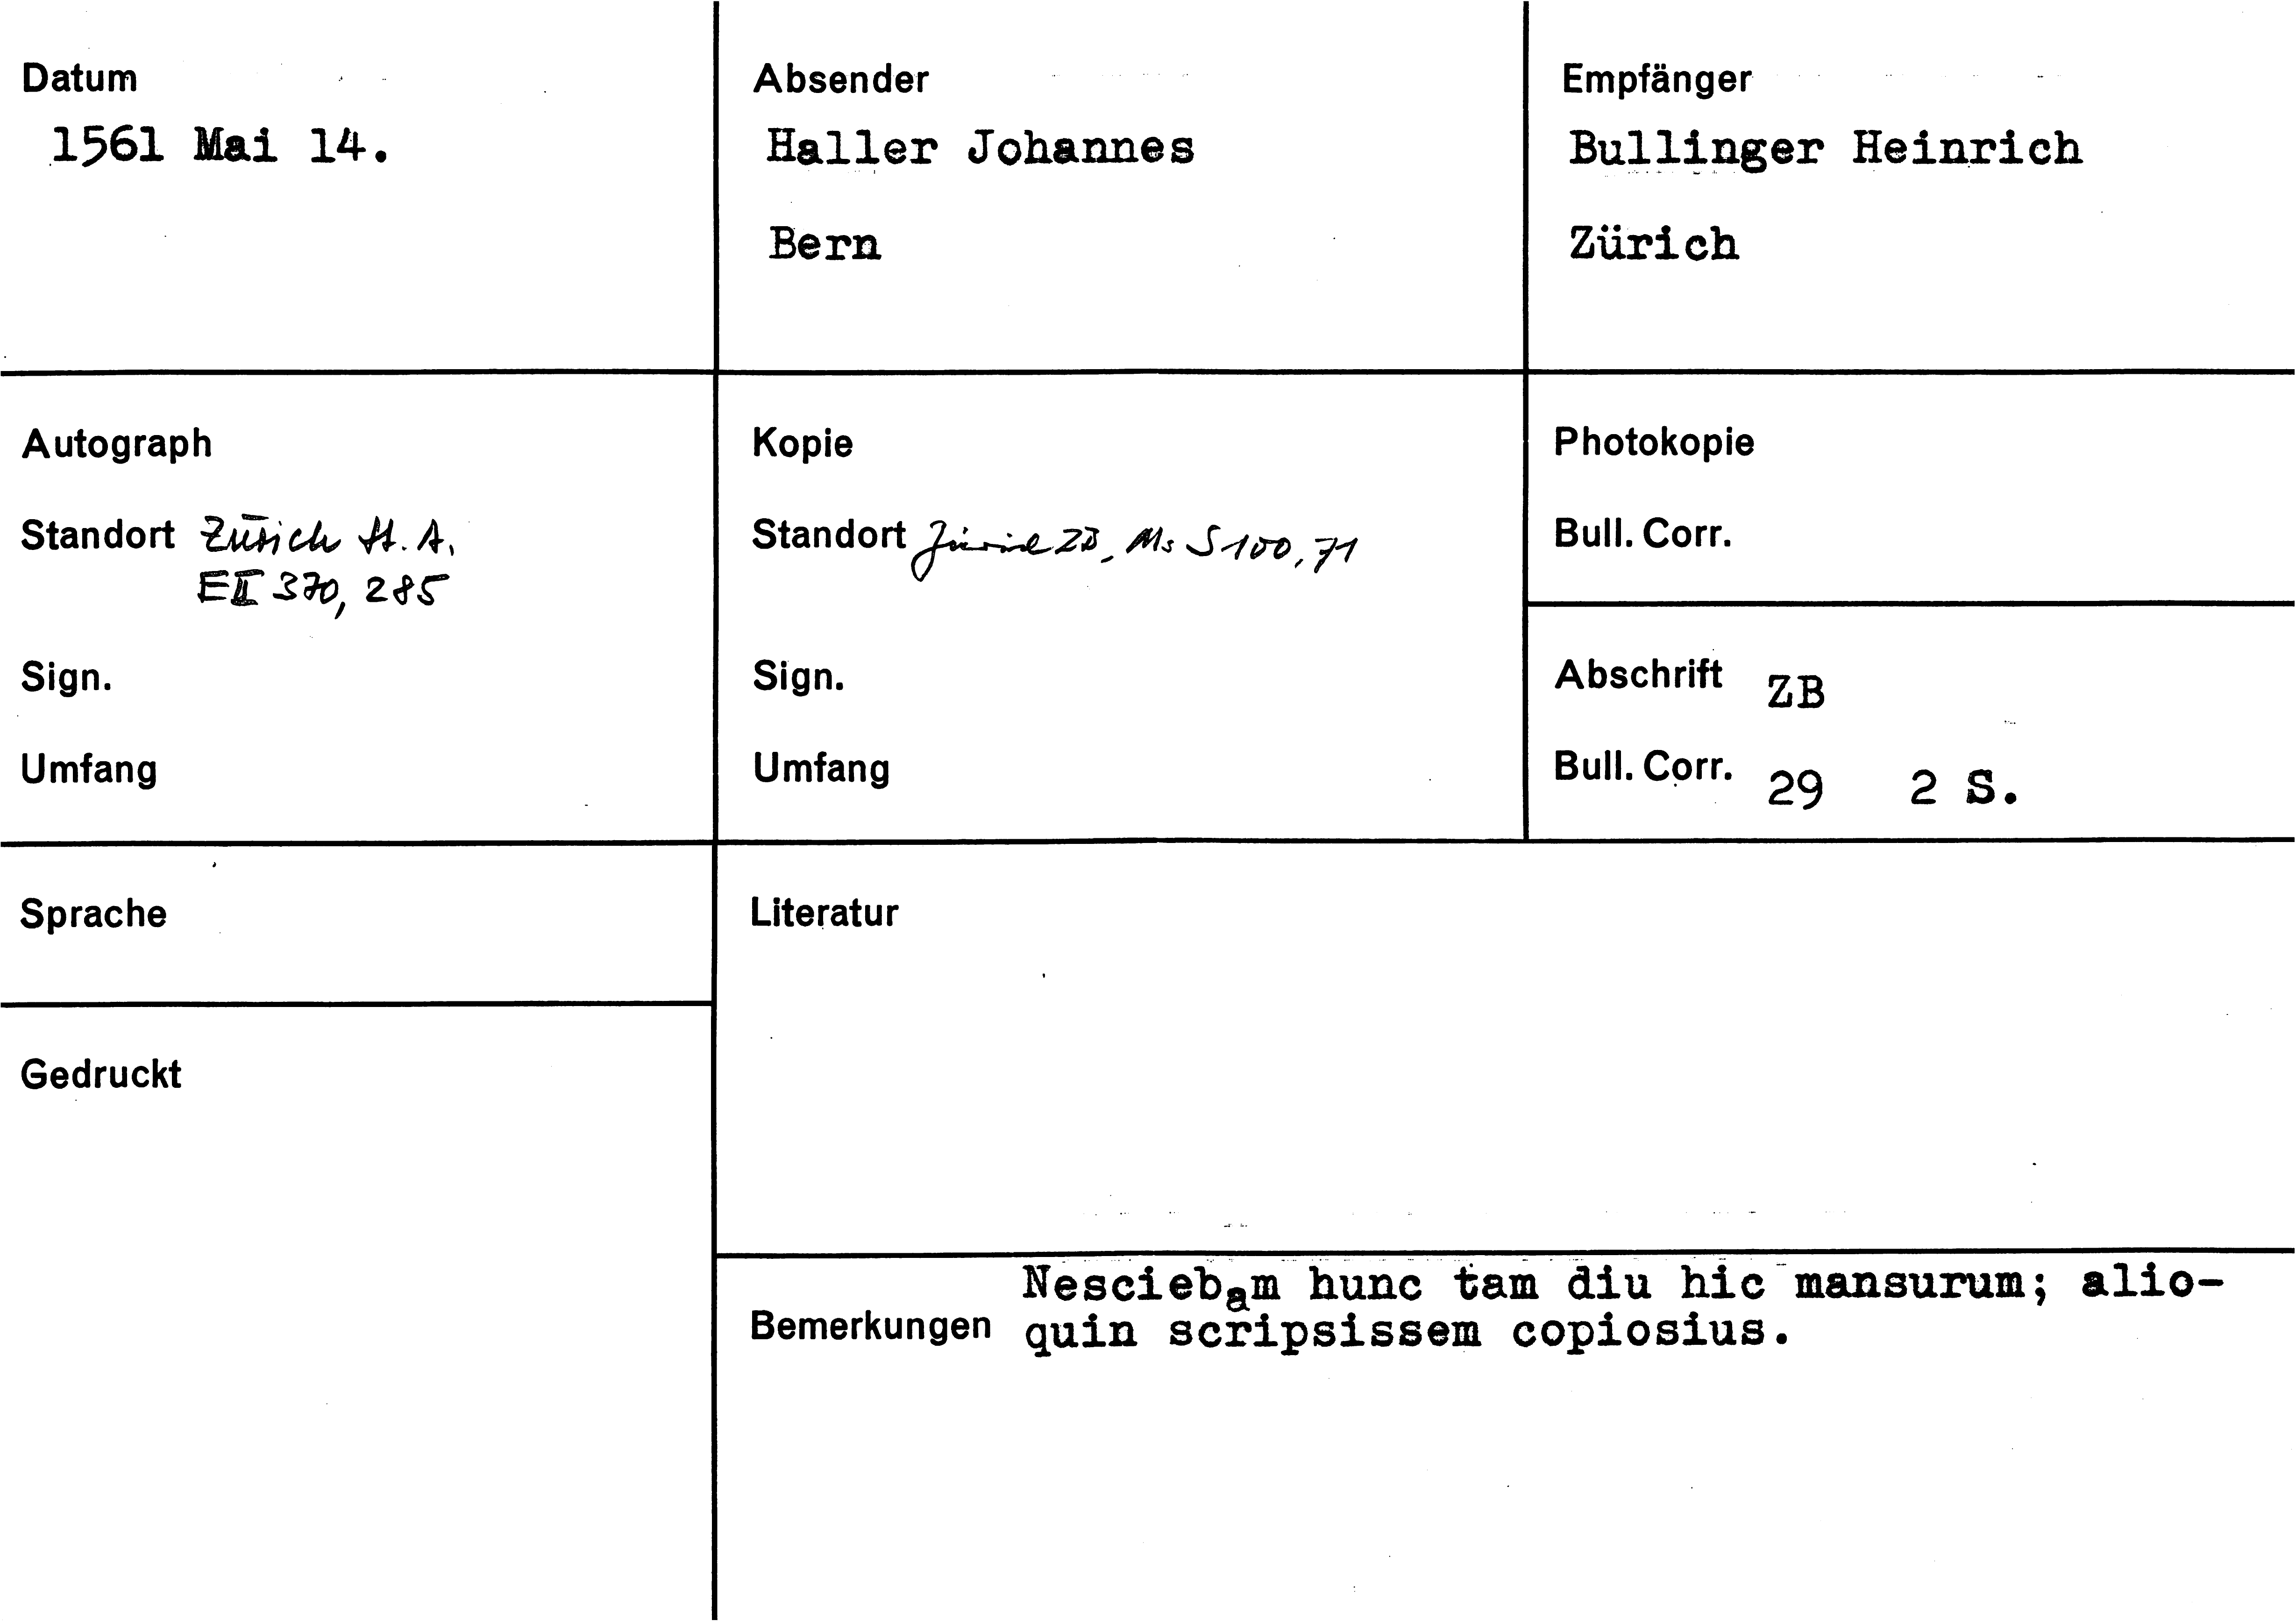 Datum
1561 Mai 14.
Absender
Haller Johannes
Bern
Empfänger
Bullinger Heinrich
Zürich
Autograph
Standort Zürich St. A.
E II 370, 285
Sign.
Umfang
Kopie
Standort Zürich ZB, Ms S 100, 71
Sign.
Umfang
Photokopie
Bull. Corr.
Abschrift ZB
Bull. Corr. 29 2 S.
Sprache
Gedruckt
Literatur
Bemerkungen
Nesciebam hunc tam diu hic mansurum; alio-
quin scripsissem copiosius.